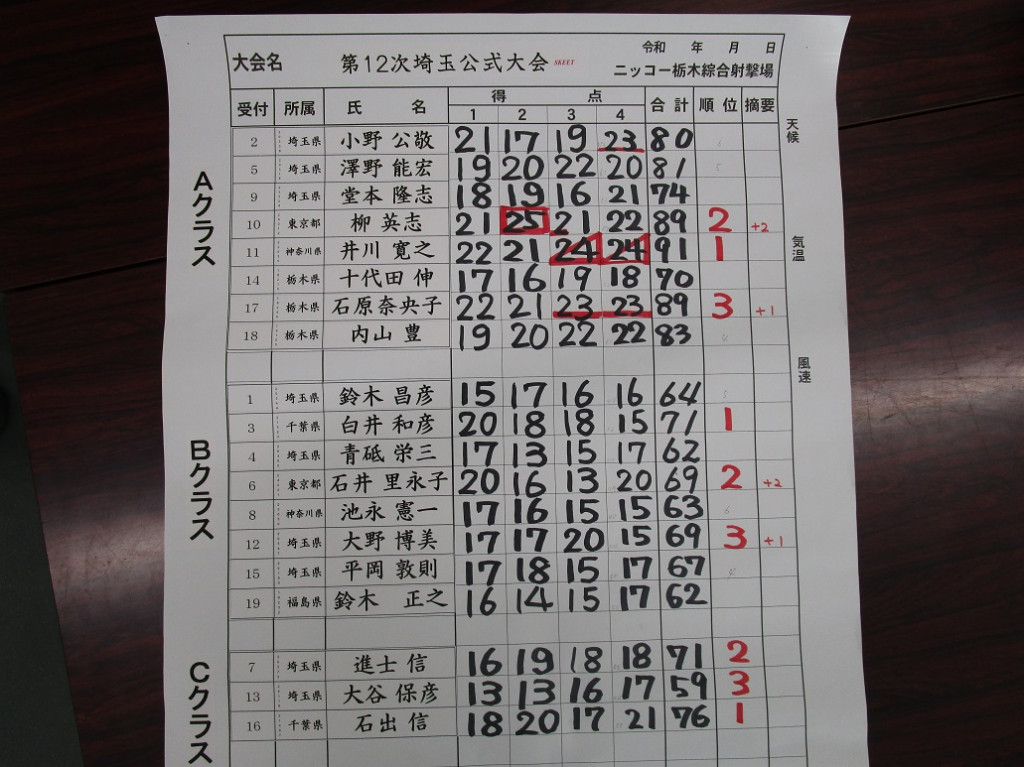 令和　年　月　日
大会名 第12次埼玉公式大会 SKEET ニッコー栃木綜合射撃場
受付 所属 氏　名 得　点 合計 順位 摘要
1 2 3 4
天候
気温
風速
Aクラス
2 埼玉県 小野 公敬 21 17 19 23 80
5 埼玉県 澤野 能宏 19 20 22 20 81
9 埼玉県 堂本 隆志 18 19 16 21 74
10 東京都 柳 英志 21 25 21 22 89 2 +2
11 神奈川県 井川 寛之 22 21 24 24 91 1
14 栃木県 十代田 伸 17 16 19 18 70
17 栃木県 石原奈央子 22 21 23 23 89 3 +1
18 栃木県 内山 豊 19 20 22 22 83
Bクラス
1 埼玉県 鈴木 昌彦 15 17 16 16 64
3 千葉県 白井 和彦 20 18 18 15 71 1
4 埼玉県 青砥 栄三 17 13 15 17 62
6 東京都 石井 里永子 20 16 13 20 69 2 +2
8 神奈川県 池永 憲一 17 16 15 15 63
12 埼玉県 大野 博美 17 17 20 15 69 3 +1
15 埼玉県 平岡 敦則 17 18 15 17 67
19 福島県 鈴木 正之 16 14 15 17 62
Cクラス
7 埼玉県 進士 信 16 19 18 18 71 2
13 埼玉県 大谷 保彦 13 13 16 17 59 3
16 千葉県 石出 信 18 20 17 21 76 1